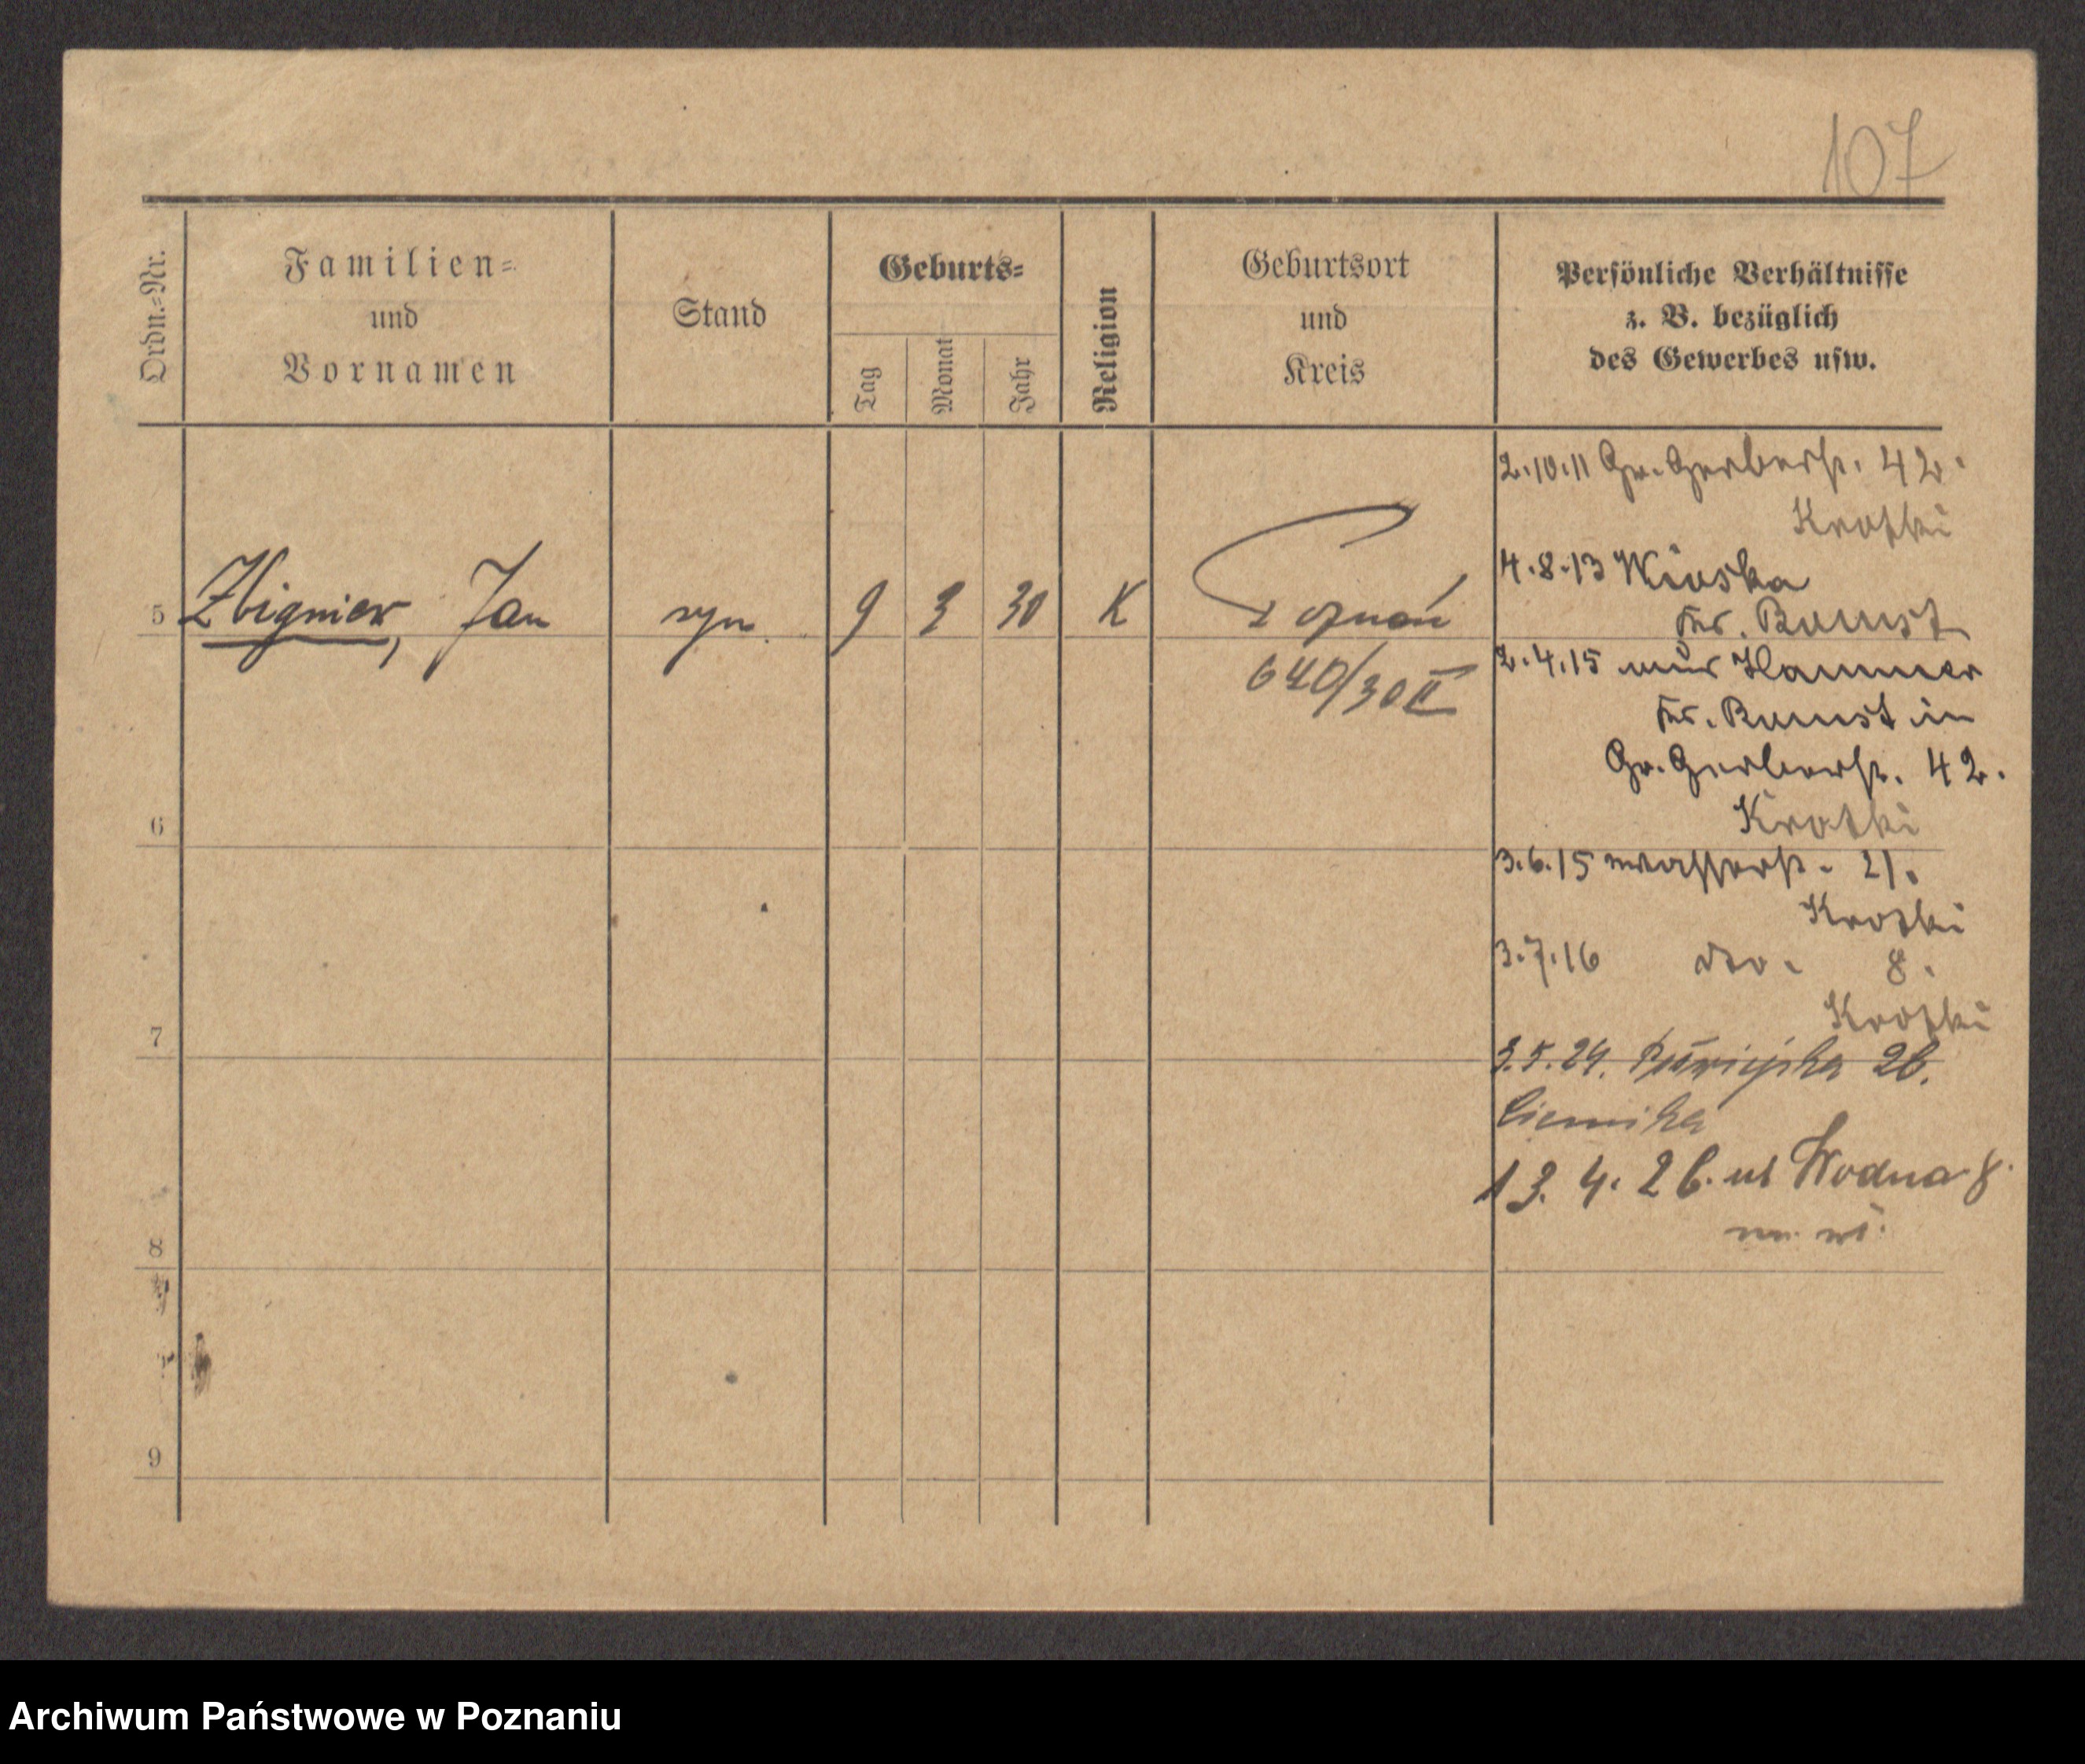 107
Ordn.=Nr.
Familien=
und
Vornamen
Stand
Geburts=
Tag
Monat
Jahr
Religion
Geburtsort
und
Kreis
Persönliche Verhältnisse
z. B. bezüglich
des Gewerbes usw.
5 Zbigniew, Jan syn 9 3 30 K Poznań
640/30 II
6
7
8
9
2.10.11 Gr. Gerberstr. 42.
Krotki
4.8.13 Kioska
Krs. Bomst
2.4.15 aus Hammer
Krs. Bomst in
Gr. Gerberstr. 42.
Krotki
3.6.15 Wasserstr. 21.
Krotki
3.7.16 dto. 8.
Krotki
3.5.24. 26.
13. 4. 26. ul Wodna 8.
Archiwum Państwowe w Poznaniu